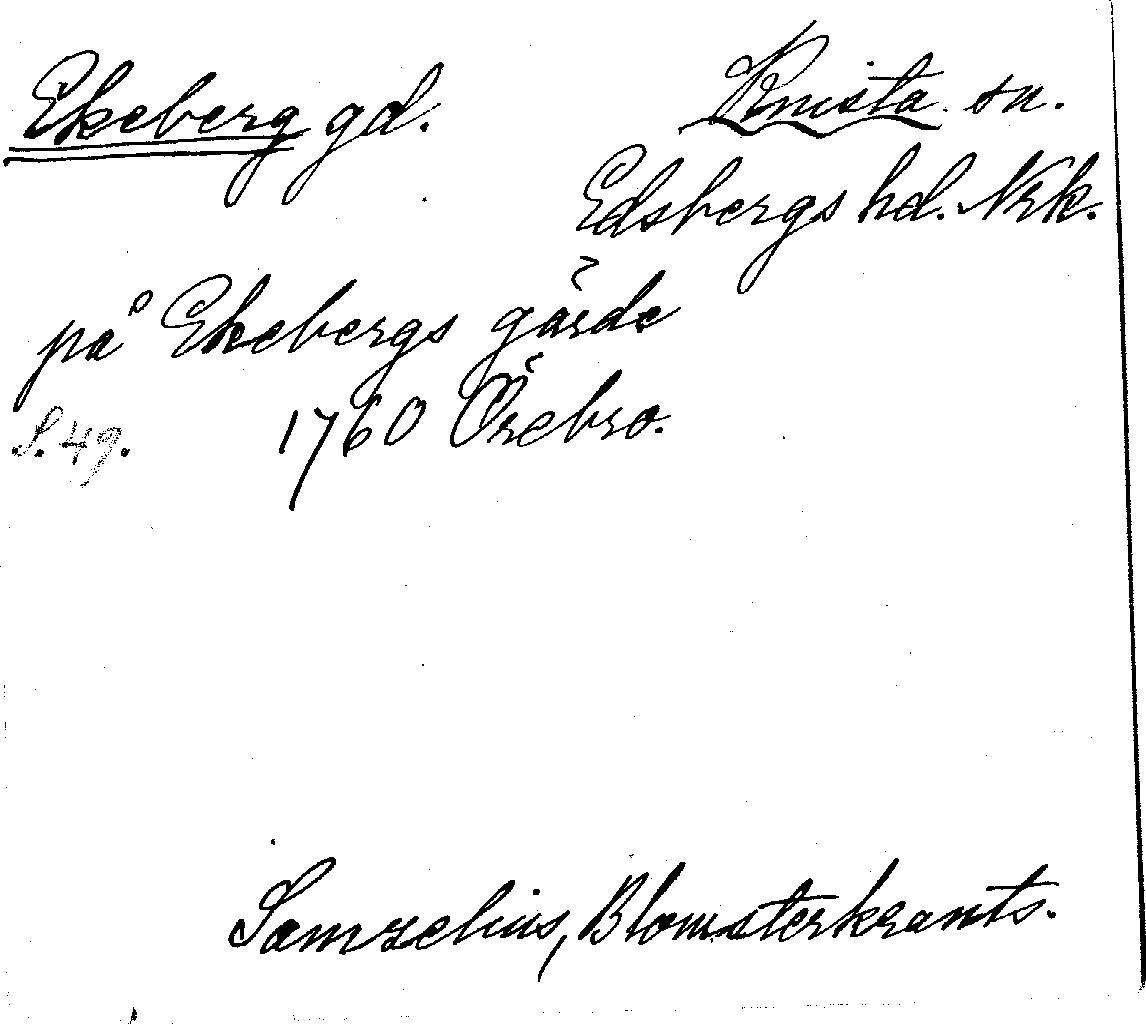 Ekeberg gd. Knista sn.
Edsbergs hd. Nrk.
på Ekebergs gärde
S. 49. 1760 Örebro.
Samzelius, Blomsterkrants.